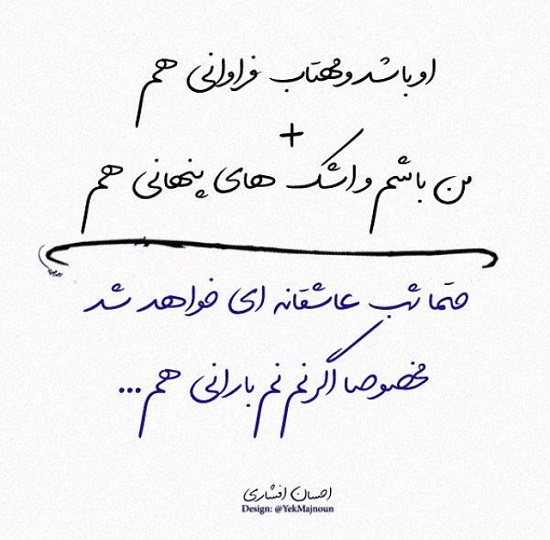 او باشد و مهتاب فراوانی هم
+
من باشم و اشک های پنهانی هم
حتما شب عاشقانه ای خواهد شد
مخصوصا اگر نم نم بارانی هم...
احسان افشاری
Design: @YekMajnoun